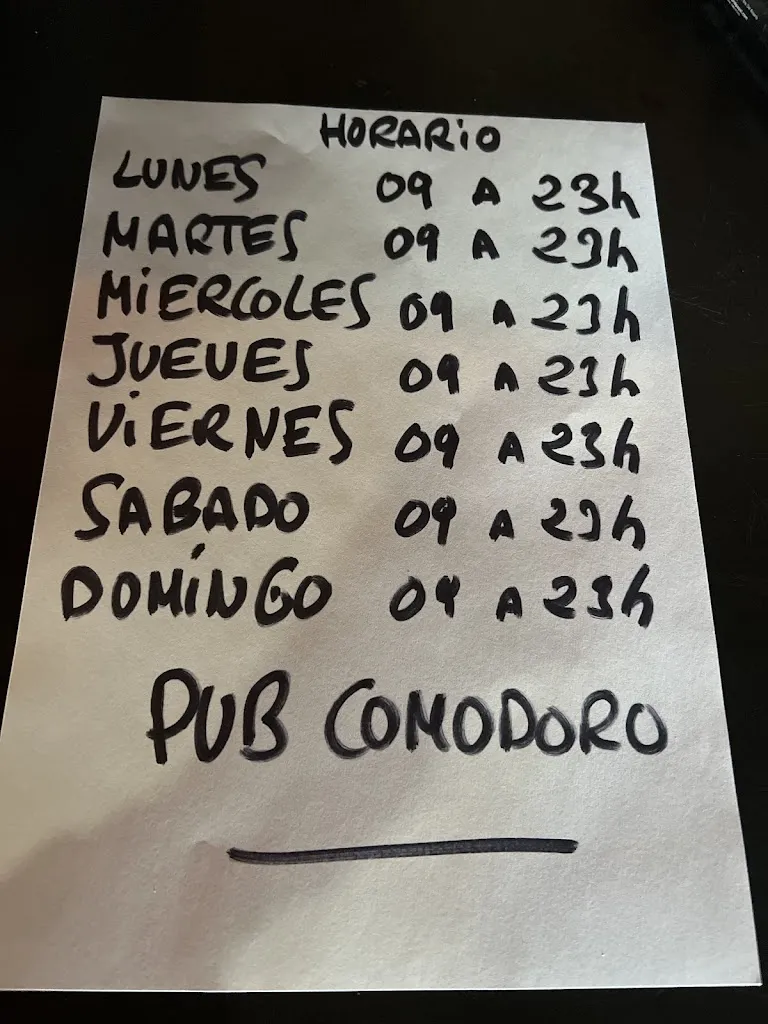 HORARiO
LUNES 09 A 23h
MARTES 09 A 23h
MiERCOLES 09 A 23h
JUEVES 09 A 23h
ViERNES 09 A 23h
SABADO 09 A 23h
DOMíNGO 09 A 23h
PUB COMODORO